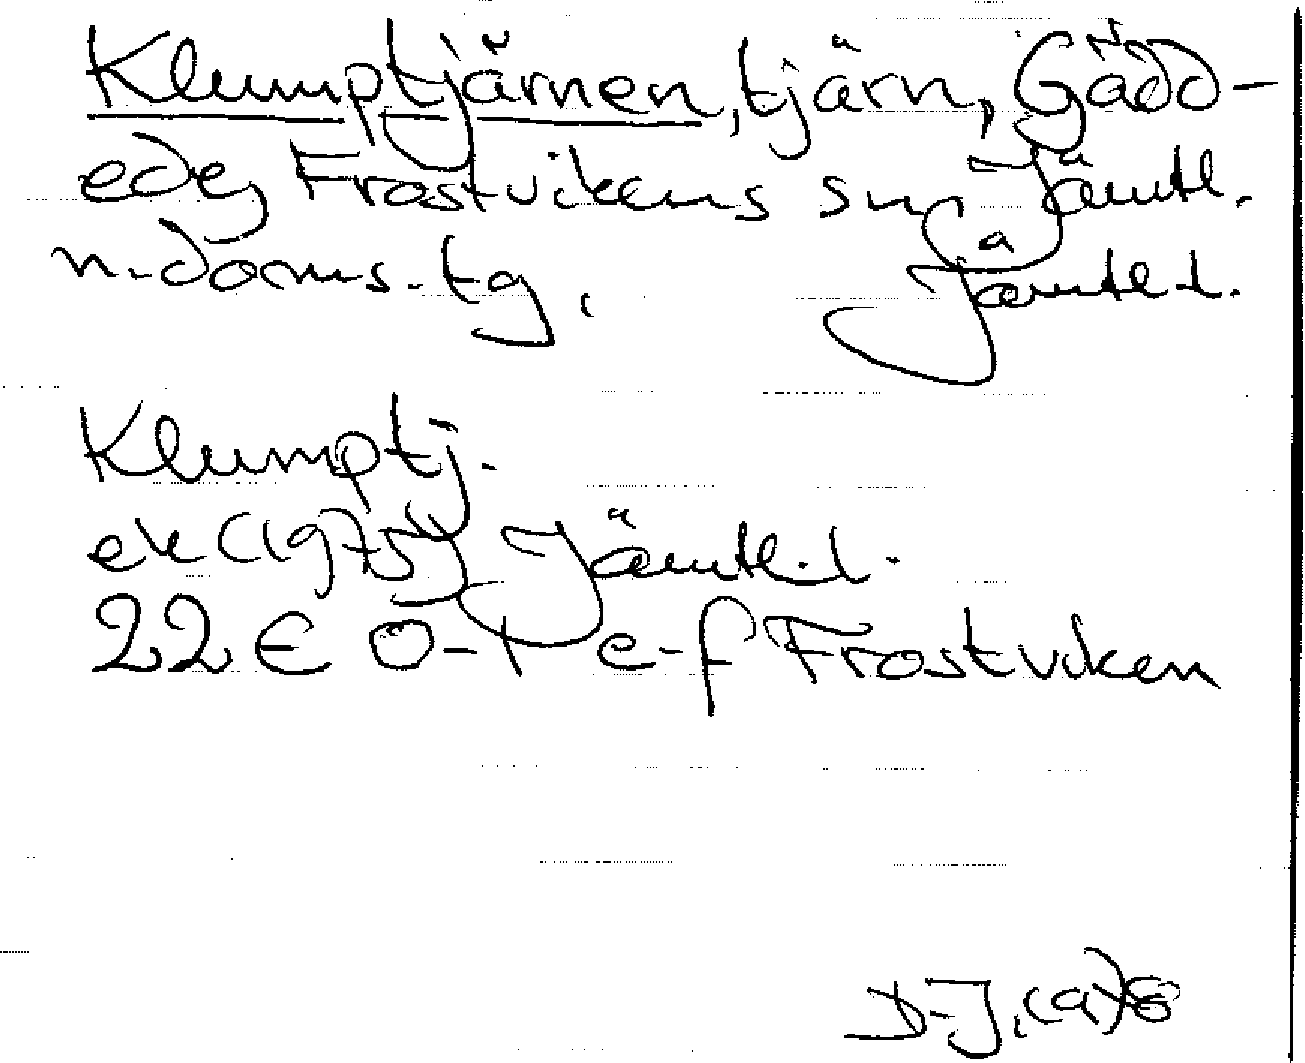 Klumptjärnen, tjärn, Gädd-
ede, Frostvikens sn, Jämtl.
n. doms. tg, Jämtl. l.
Klumptj.
ek (1975) Jämtl. l.
22 E Ö-t e-f Frostviken